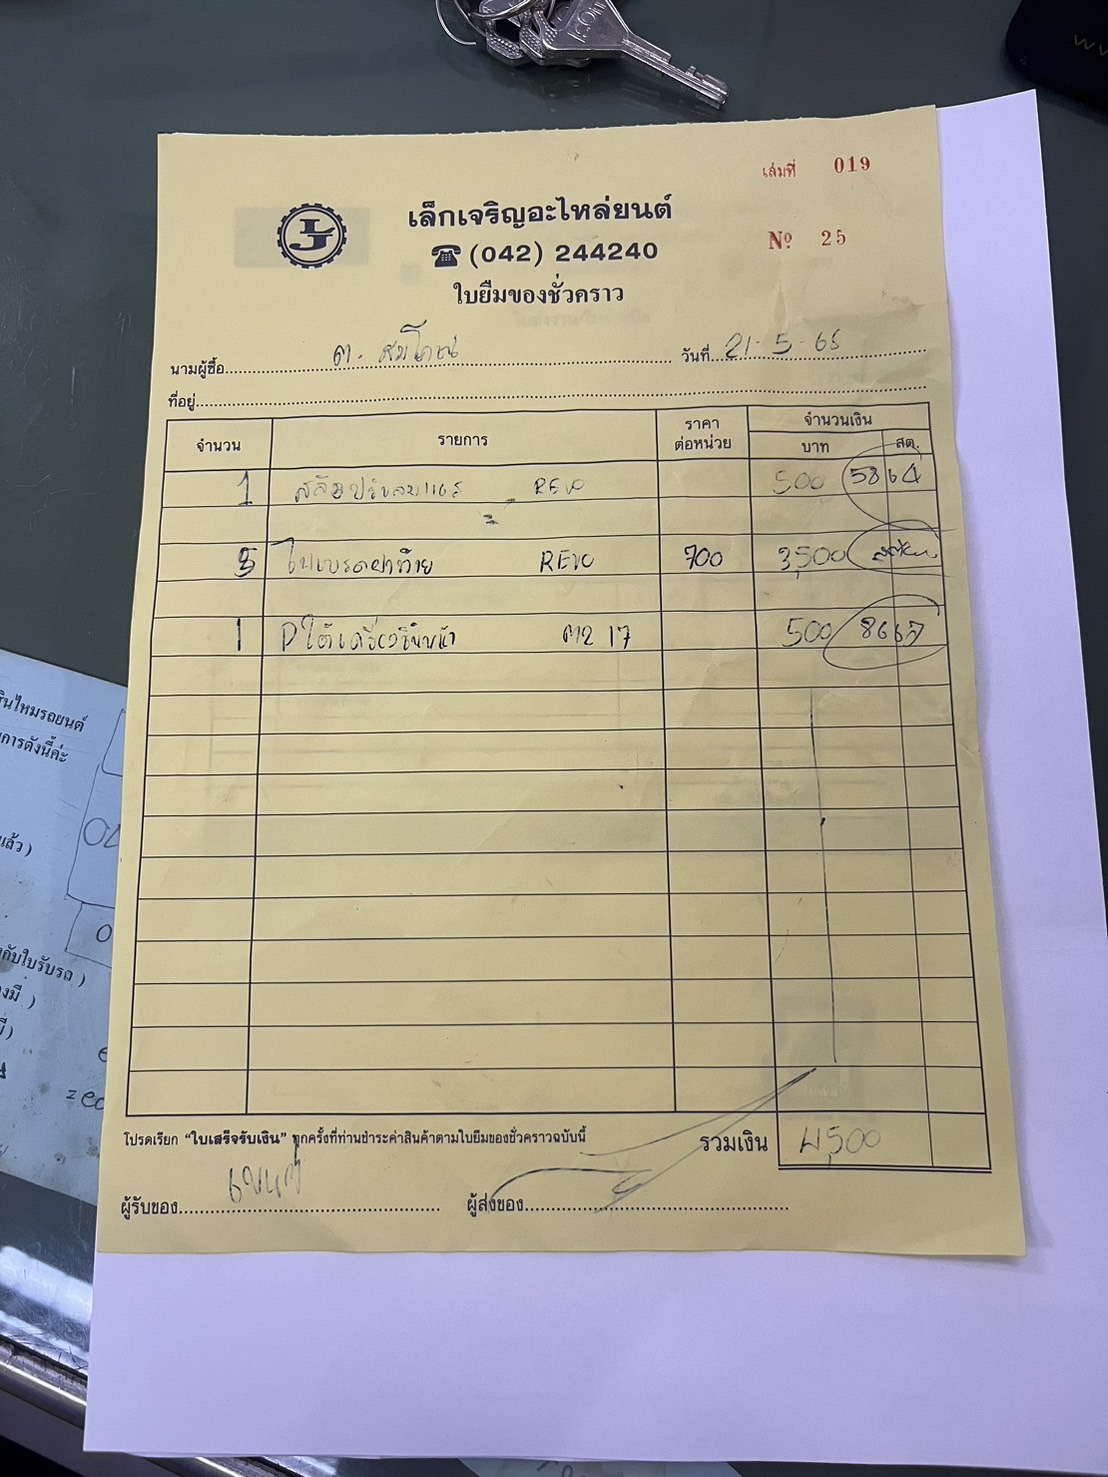 เล่มที่ 019
LJ
เล็กเจริญอะไหล่ยนต์
(042) 244240
Nº 25
ใบยืมของชั่วคราว
นามผู้ซื้อ ต. สมโภชน์ วันที่ 21-5-65
ที่อยู่
จำนวน รายการ ราคาต่อหน่วย จำนวนเงิน
บาท สต.
1 REVO 500 5864
5 REVO 700 3,500
1 M2 17 500 8667
โปรดเรียก “ใบเสร็จรับเงิน” ทุกครั้งที่ท่านชำระค่าสินค้าตามใบยืมของชั่วคราวฉบับนี้
รวมเงิน 4,500
ผู้รับของ
ผู้ส่งของ
สินไหมรถยนต์
การดังนี้ค่ะ
แล้ว )
กับใบรับรถ )